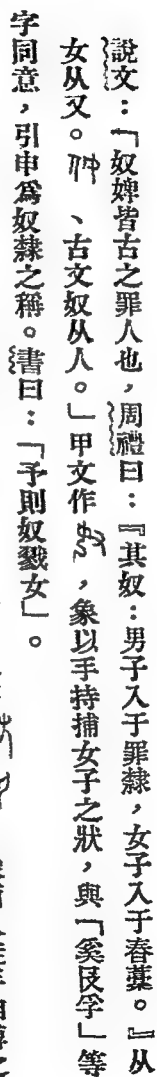 說文：「奴婢皆古之罪人也，周禮曰：『其奴：男子入于罪隸，女子入于舂藁。』从
女从又。、古文奴从人。」甲文作，象以手持捕女子之狀，與「奚𠬝孚」等
字同意，引申爲奴隸之稱。書曰：「予則奴戮女」。